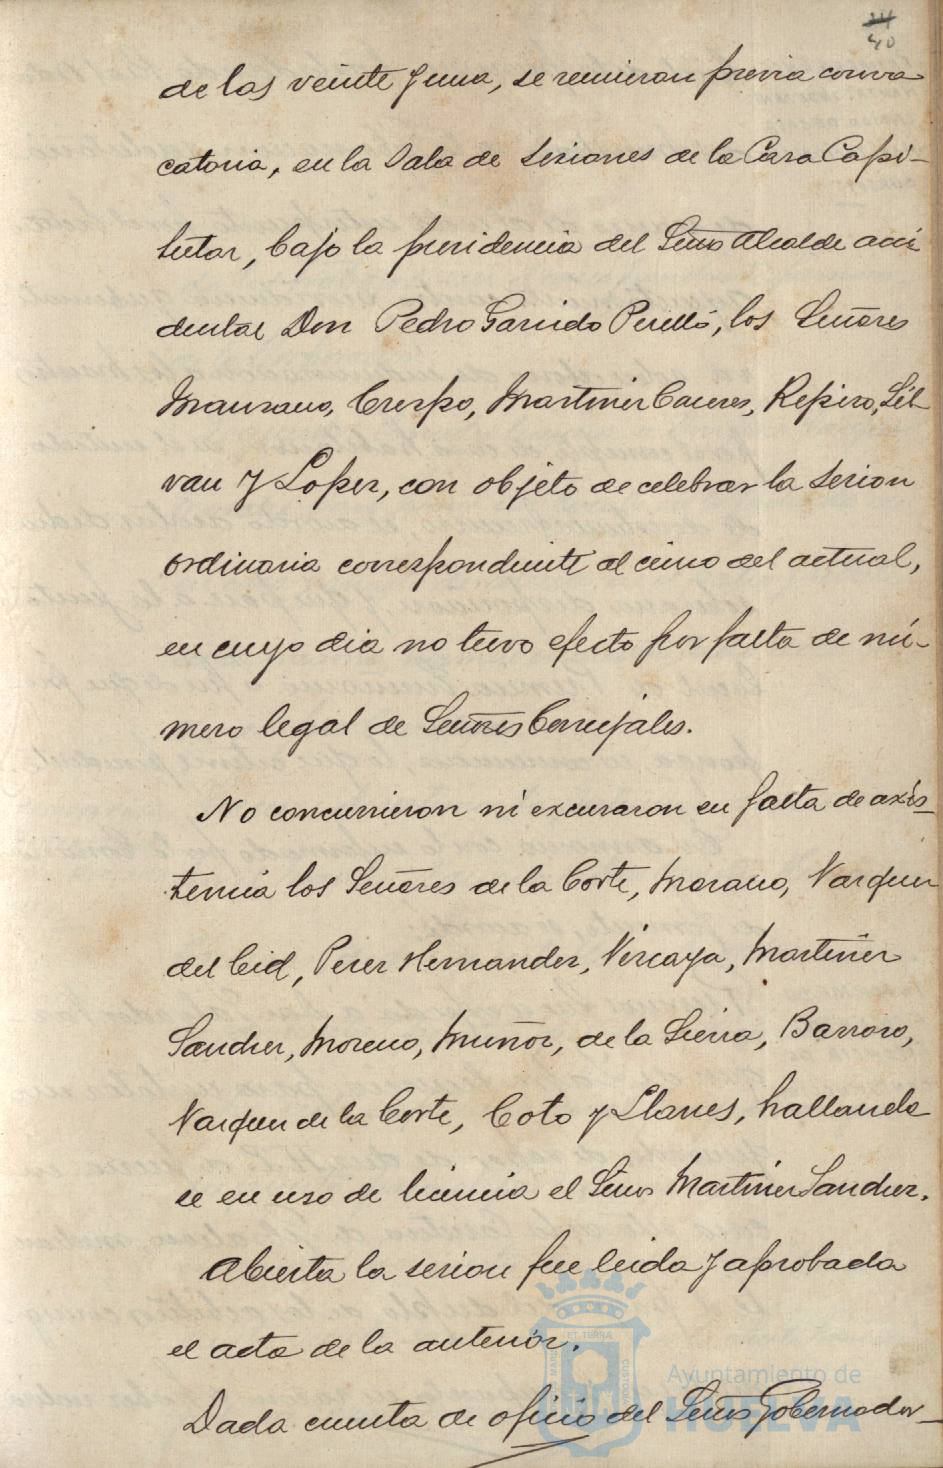 40
de las veinte y una, se reunieron previa convo
catoria, en la Sala de Sesiones de la Casa Capi-
tular, bajo la presidencia del Señor Alcalde acci
dental Don Pedro Garrido Perelló, los Señores
Manzano, Crespo, Martinez Caceres, Repiso, Sil-
van y Lopez, con objeto de celebrar la sesion
ordinaria correspondiente al cinco del actual,
en cuyo dia no tuvo efecto por falta de nú-
mero legal de Señores Concejales.
No concurrieron ni excusaron su falta de axis-
tencia los Señores de la Corte, Morano, Vazquez
del Cid, Perez Hernandez, Vizcaya, Martinez
Sanchez, Moreno, Muñoz, de la Sierra, Barroso,
Vazquez de la Corte, Coto y Llanes, hallando
se en uso de licencia el Señor Martinez Sanchez.
Abierta la sesion fue leida y aprobada
el acta de la anterior.
Dada cuenta de oficio del Señor Gobernador
Ayuntamiento de
HUELVA